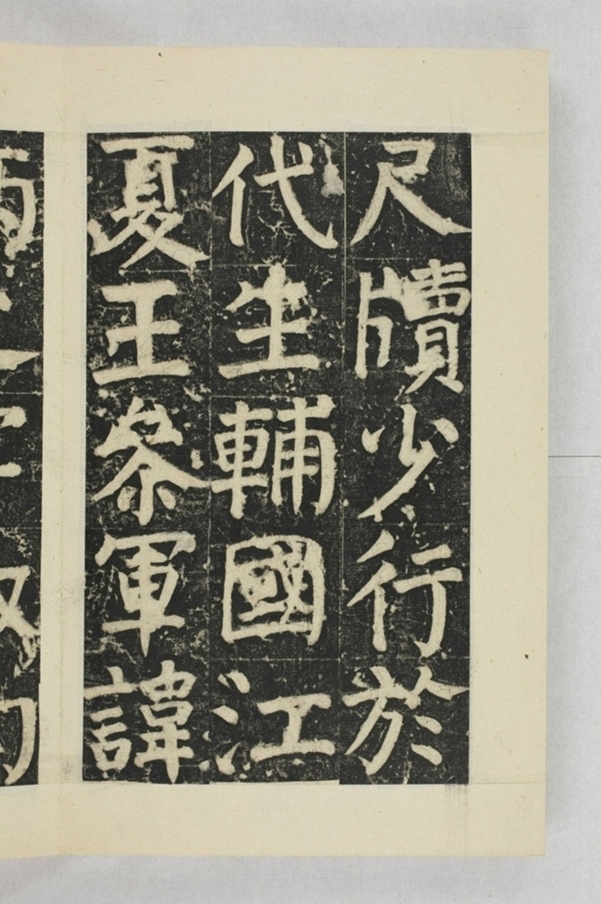 尺牘少行於
代生輔國江
夏王叅軍諱